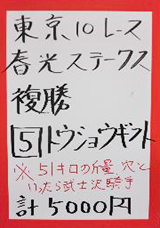 東京、10レース
春光ステークス
複勝
5トウショウギフト
※51キロの分量 穴と
いったら武士沢騎手
計5000円